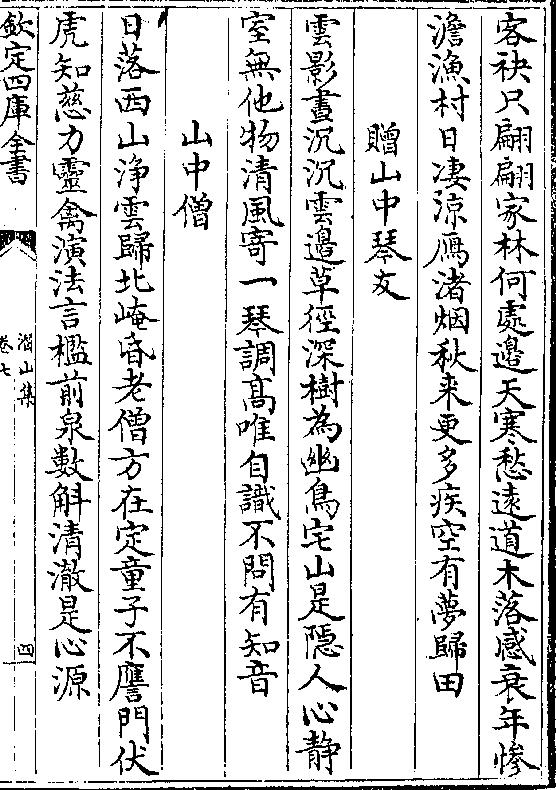 客袂只翩翩家林何處邊天寒愁遠道木落感衰年慘
澹漁村日凄涼鴈渚烟秋来更多疾空有夢歸田
贈山中琴友
雲影晝沉沉雲邊草徑深樹為幽鳥宅山是隠人心静
室無他物清風寄一琴調髙唯自識不問有知音
山中僧
日落西山浄雲歸北崦昏老僧方在定童子不譍門伏
虎知慈力靈禽演法言檻前泉數斛清澈是心源
欽定四庫全書
潛山集
卷七
四